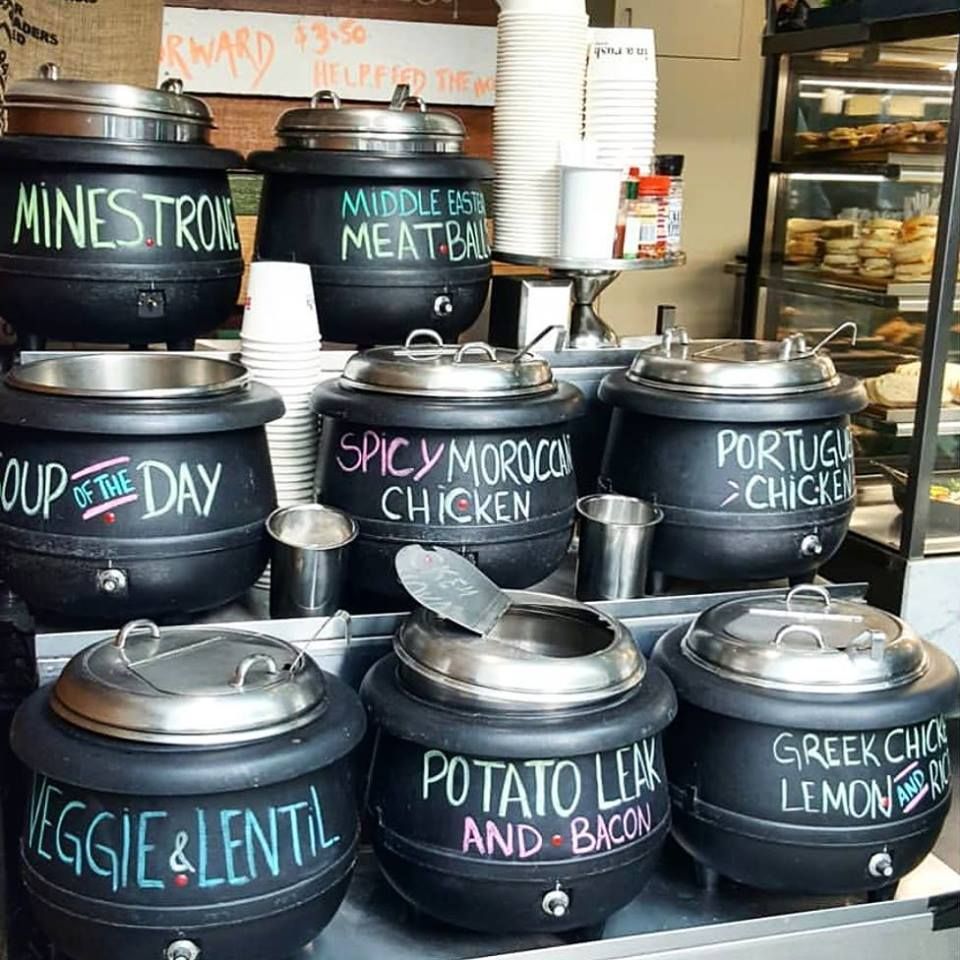 ORWARD $3.50
HELP FEED THE
in a rush
MINESTRONE
MIDDLE EASTE
MEAT BALL
SOUP OF THE DAY
SPICY MOROCCAN
CHICKEN
PORTUGUE
CHICKEN
VEGGIE & LENTIL
POTATO LEAK
AND BACON
GREEK CHICKE
LEMON AND RIC